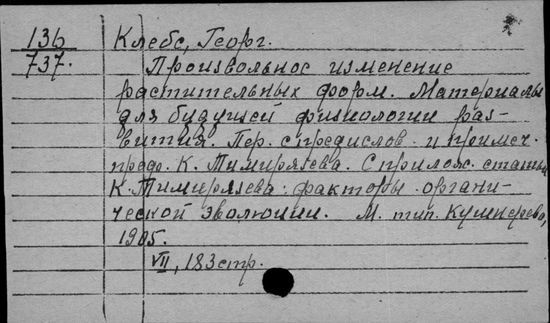 136 Клебс, Георг.
737. Произвольное изменение
растительных форм. Материалы
для будущей физиологии раз-
вития. Пер. с предислов. и примеч.
проф. К. Тимирязева. С прилож. статьи
К. Тимирязева: факторы органи-
ческой эволюции. М. тип. Кушнерева,
1905.
VII, 183 стр.